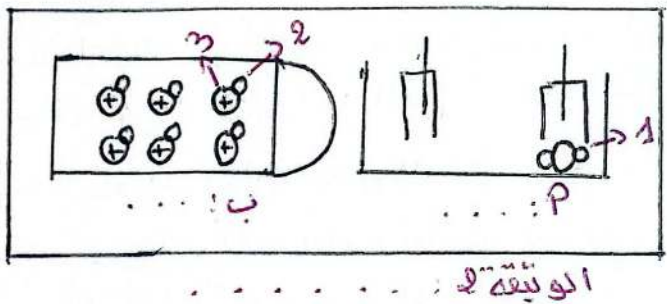 3 2
+ + +
+ + +
1
أ: . . . .
ب: . . . .
الوثيقة 2 . . . . . . .